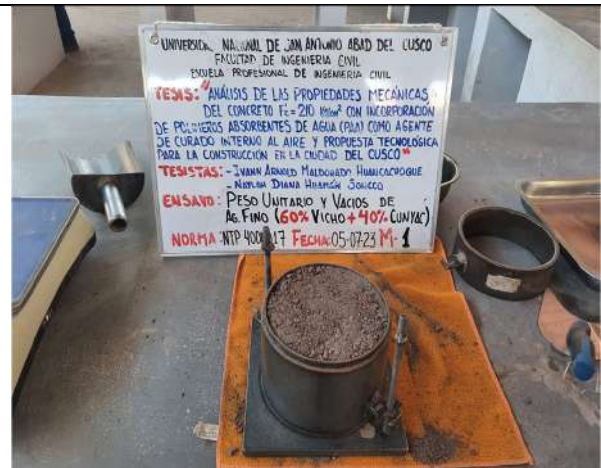 UNIVERSIDAD NACIONAL DE SAN ANTONIO ABAD DEL CUSCO
FACULTAD DE INGENIERIA CIVIL
ESCUELA PROFESIONAL DE INGENIERIA CIVIL
TESIS: "ANÁLISIS DE LAS PROPIEDADES MECÁNICAS
DEL CONCRETO F'c=210 CON INCORPORACIÓN
DE POLÍMEROS ABSORBENTES DE AGUA (PAA) COMO AGENTE
DE CURADO INTERNO AL AIRE Y PROPUESTA TECNOLÓGICA
PARA LA CONSTRUCCIÓN EN LA CIUDAD DEL CUSCO"
TESISTAS: - IVANN ARNOLD MALDONADO
- DIANA HUAMÁN
ENSAYO: PESO UNITARIO Y VACIOS DE
AG. FINO (60% VICHO + 40% CUNYAC)
NORMA: NTP 400.017 FECHA: 05-07-23 M-1